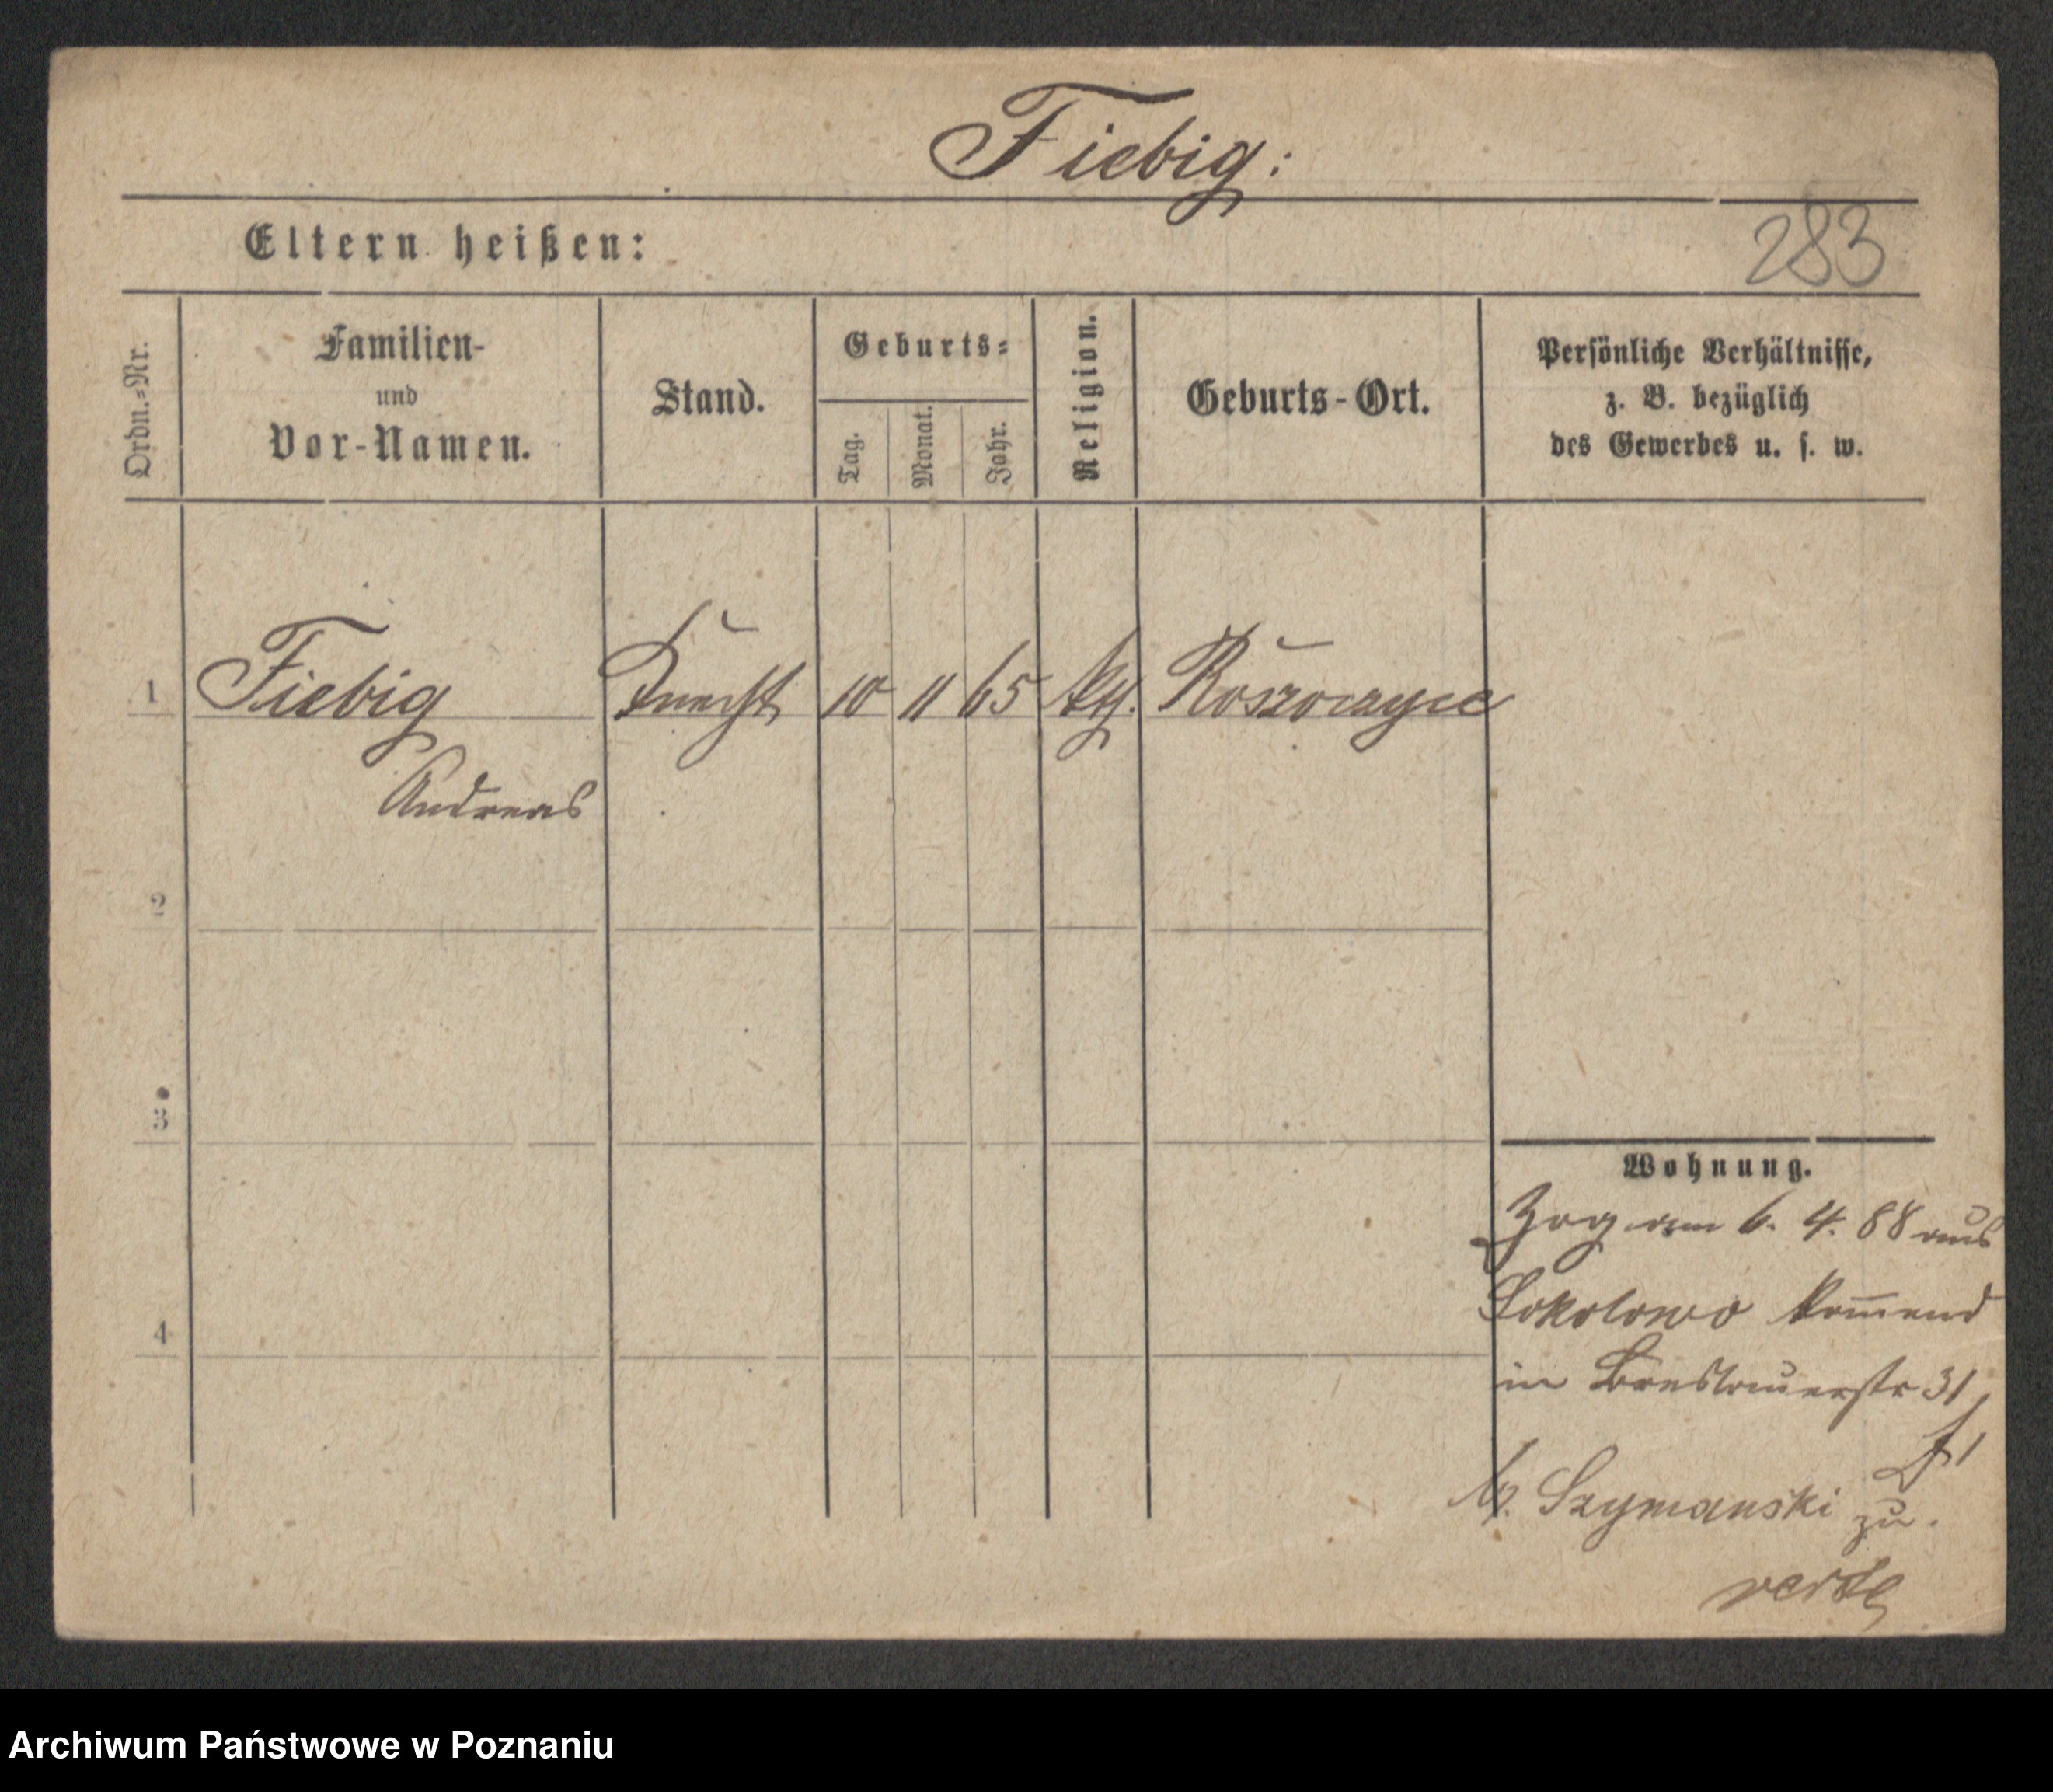 Fiebig:
Eltern heißen:
283
Ordn.-Nr.
Familien-
und
Vor-Namen.
Stand.
Geburts-
Tag.
Monat.
Jahr.
Religion.
Geburts-Ort.
Persönliche Verhältnisse,
z. B. bezüglich
des Gewerbes u. s. w.
1 Fiebig Knecht 10 11 65 kth.
Andreas
2
3
4
Wohnung.
Zog am 6. 4. 88 aus
Sokolowo kommend
in Breslauerstr 31
b. Szymanski zu.
Archiwum Państwowe w Poznaniu